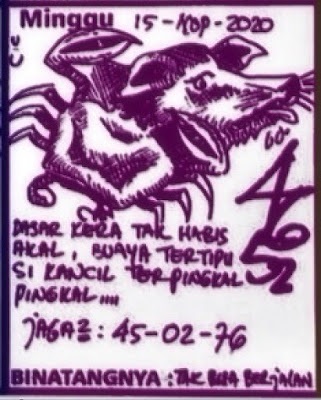 Minggu 15-KOP-2020
60
4652
DASAR KERA TAK HABIS
AKAL, BUAYA TERTIPU
SI KANCIL TERPINGKAL
PINGKAL....
JAGA2: 45-02-76
BINATANGNYA: TAK BISA BERJALAN